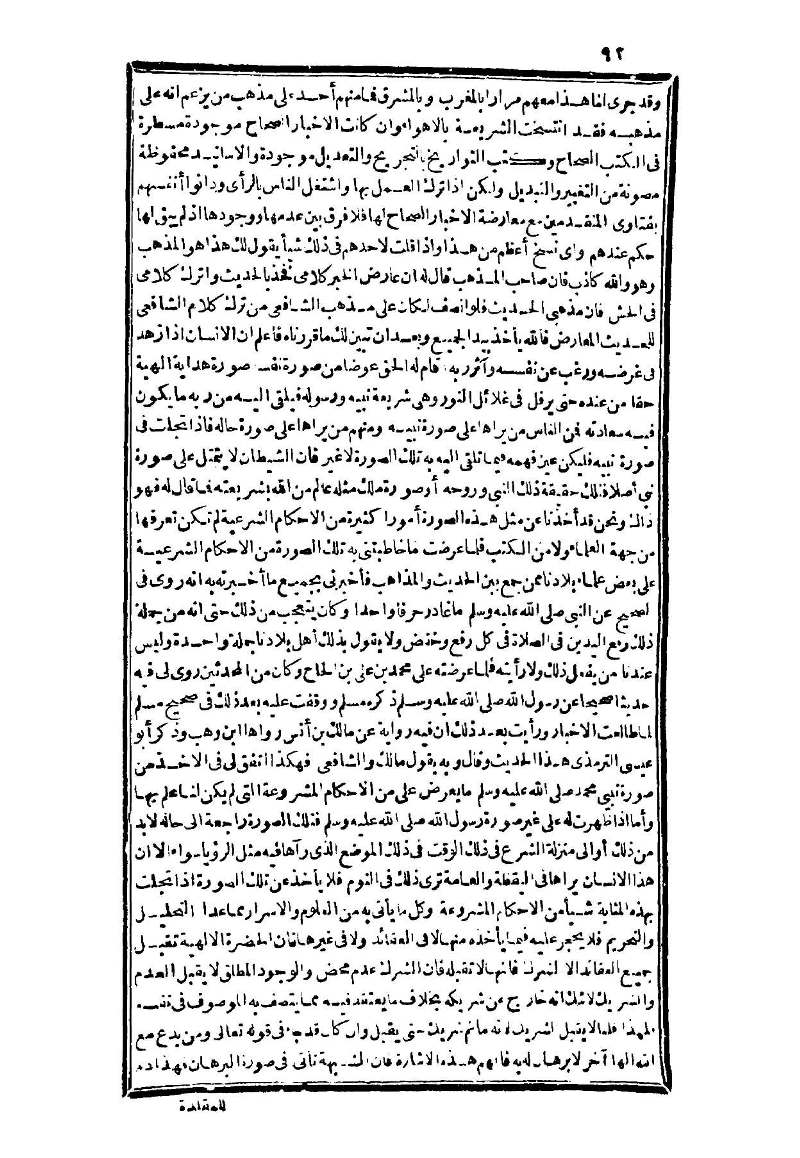 ٩٢
وقد جرى لنا هذا معهم مرارا بالمغرب وبالمشرق فما منهم أحد على مذهب من يزعم انه على
مذهبه فقد انتسخت الشريعة بالاهواء وان كانت الاخبار الصحاح موجودة مسطرة
فى الكتب الصحاح وكتب التواريخ بالتجريح والتعديل موجودة والاسانيد محفوظة
مصونة من التغيير والتبديل ولكن اذا ترك العمل بها واشتغل الناس بالرأى ودانوا أنفسهم
بفتاوى المتقدمين مع معارضة الاخبار الصحاح لها فلا فرق بين عدمها ووجودها اذ لم يبق لها
حكم عندهم واى نسخ أعظم من هذا واذا قلت لاحدهم فى ذلك شيأ يقول لك هذا هو المذهب
وهو والله كاذب فان صاحب المذهب قال له ان عارض الخبر كلامى فخذ بالحديث واترك كلامى
فى الحش فان مذهبى الحديث فلو انصف لكان على مذهب الشافعى من ترك كلام الشافعى
للحديث المعارض فالله يأخذ بيد الجميع وبعد ان تبين لك ما قررناه فاعلم ان الانسان اذا زهد
فى غرضه ورغب عن نفسه وآثر ربه قام له الحق عوضا من صورة نفسه صورة هداية الهية
حقا من عنده حتى يرفل فى غلائل النور وهى شريعة نبيه ورسوله فيلقى اليه من ربه ما يكون
فيه سعادته فمن الناس من يراها على صورة نبيه ومنهم من يراها على صورة حاله فاذا تجلت فى
صورة نبيه فليكن عين فهمه فيما تلقى اليه به تلك الصورة لا غير فان الشيطان لا يتمثل على صورة
نبى أصلا فتلك حقيقة ذلك النبى وروحه أو صورة ملك مثله عالم من الله بشريعته فما قال له فهو
ذاك ونحن قد أخذنا عن مثل هذه الصورة أمورا كثيرة من الاحكام الشرعية لم نكن نعرفها
من جهة العلماء ولا من الكتب فلما عرضت ما خاطبتنى به تلك الصورة من الاحكام الشرعية
على بعض علماء بلادنا ممن جمع بين الحديث والمذاهب فأخبرنى بجميع ما أخبرته به انه روى فى
الصحيح عن النبى صلى الله عليه وسلم ما غادر حرفا واحدا وكان يتعجب من ذلك حتى انه من جملة
ذلك رفع اليدين فى الصلاة فى كل رفع وخفض ولا يقول بذلك أهل بلادنا جملة واحدة وليس
عندنا من يفعل ذلك ولا رأيته فلما عرضته على محمد بن على بن الحاج وكان من المحدثين روى لى فيه
حديثا صحيحا عن رسول الله صلى الله عليه وسلم ذكره مسلم ووقفت عليه بعد ذلك فى صحيح مسلم
لما طالعت الاخبار ورأيت بعد ذلك ان فيه رواية عن مالك بن أنس رواها ابن وهب وذكر أبو
عيسى الترمذى هذا الحديث وقال وبه يقول مالك والشافعى فهكذا اتفق لى فى الاخذ من
صورة نبيى محمد صلى الله عليه وسلم ما يعرض على من الاحكام المشروعة التى لم يكن لنا علم بها
وأما اذا ظهرت له على غير صورة رسول الله صلى الله عليه وسلم فتلك الصورة راجعة الى حاله لا بد
من ذلك أو الى منزلة الشرع فى ذلك الوقت فى ذلك الموضع الذى رآها فيه مثل الرؤيا سواء الا ان
هذا الانسان يراها فى اليقظة والعامة ترى ذلك فى النوم فلا يأخذ عن تلك الصورة اذا تجلت
بهذه المثابة شيأ من الاحكام المشروعة وكل ما يأتى به من العلوم والاسرار مما عدا التحليل
والتحريم فلا يحجر عليه فيما يأخذه منها لا فى العقائد ولا فى غيرها فان الحضرة الالهية تقبل
جميع العقائد الا الشرك فانها لا تقبله فان الشرك عدم محض والوجود المطلق لا يقبل العدم
والشريك لا شك انه خارج عن شريكه بخلاف ما يعتقد فيه مما يتصف به الموصوف فى نفسه
فلهذا قلنا لا يقبل الشريك لانه ما ثم شريك حتى يقبل وان كان قد جاء فى قوله تعالى ومن يدع مع
الله الها آخر لا برهان له به فافهم هذه الاشارة فان الشبهة تأتى فى صورة البرهان فهذا ذم
للمقلدة